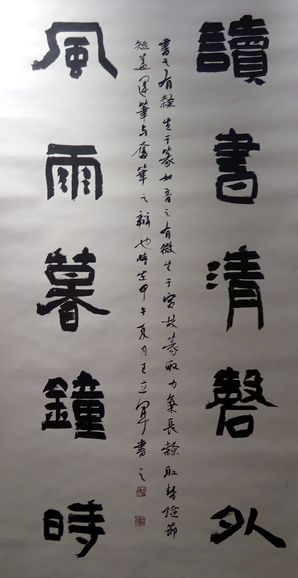 讀書清磬外
書之有隸生于篆如音之有徵生于宮故篆取力氣長隸取勢險節
短蓋運筆与奮筆之辨也時在甲午夏月王立軍書之
風雨暮鐘時